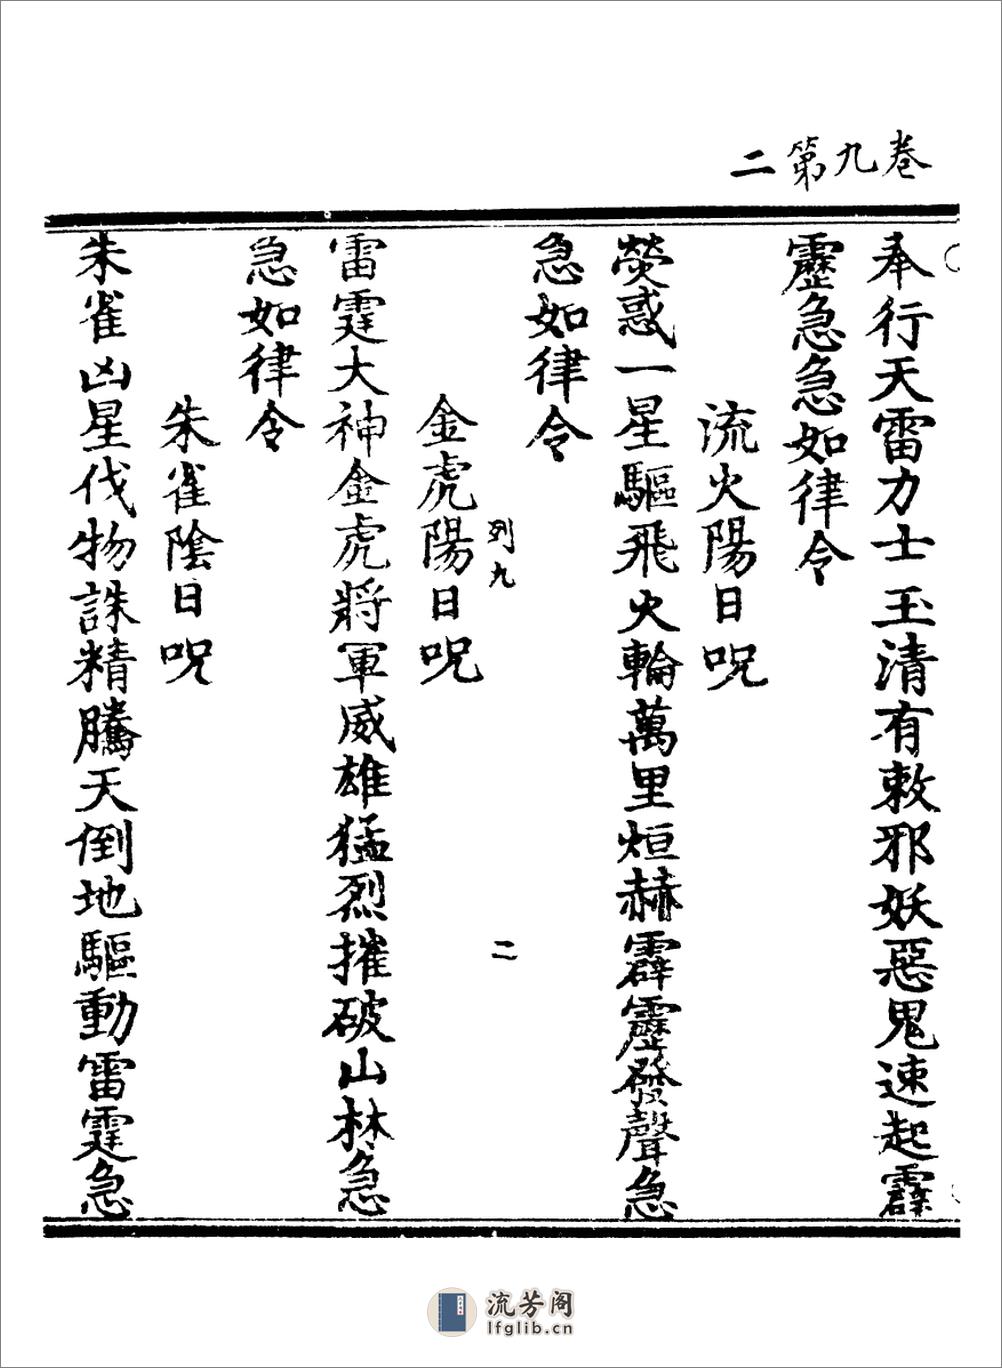 卷九第二
奉行天雷力士玉清有敕邪妖惡鬼速起霹
靂急急如律令
流火陽日呪
熒惑一星驅飛火輪萬里烜赫霹靂發聲急
急如律令
列九
二
金虎陽日呪
雷霆大神金虎將軍威雄猛烈摧破山林急
急如律令
朱雀陰日呪
朱雀凶星伐物誅精騰天倒地驅動雷霆急
流芳阁
lfglib.cn